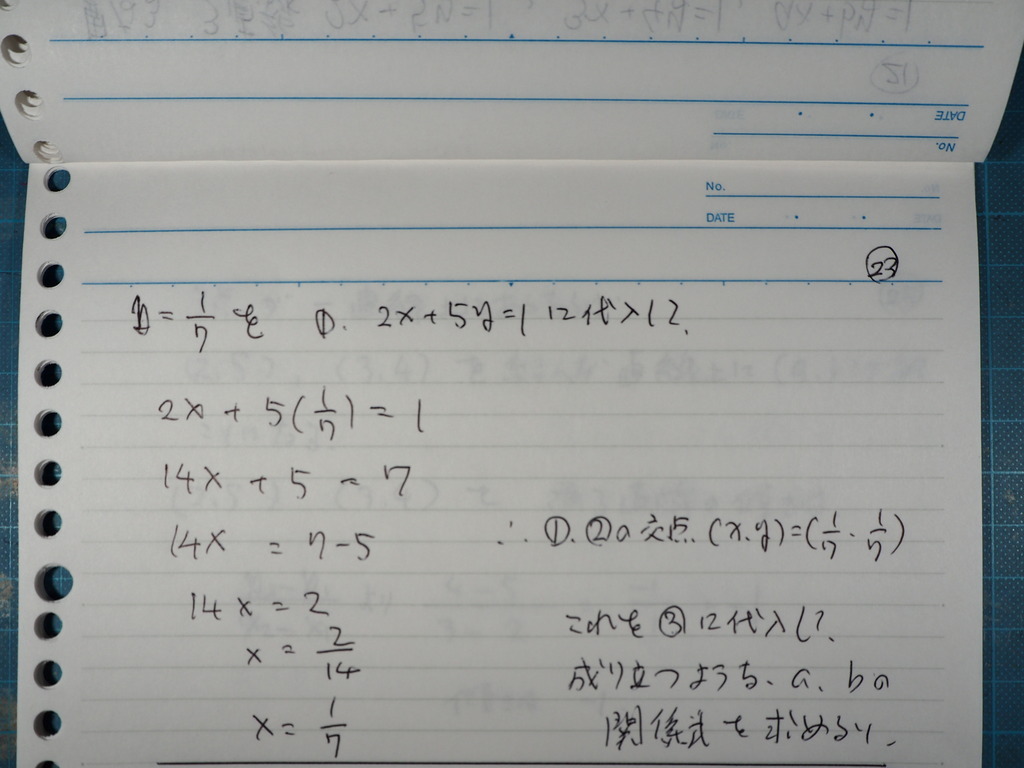 No.
DATE
No.
DATE
㉓
y = 1/7 を ①. 2x + 5y = 1 に代入して.
2x + 5(1/7) = 1
14x + 5 = 7
14x = 7 - 5
14x = 2
x = 2/14
x = 1/7
∴ ①. ②の交点. (x, y) = (1/7, 1/7)
これを ③ に代入して.
成り立つような、a、bの
関係式を求める